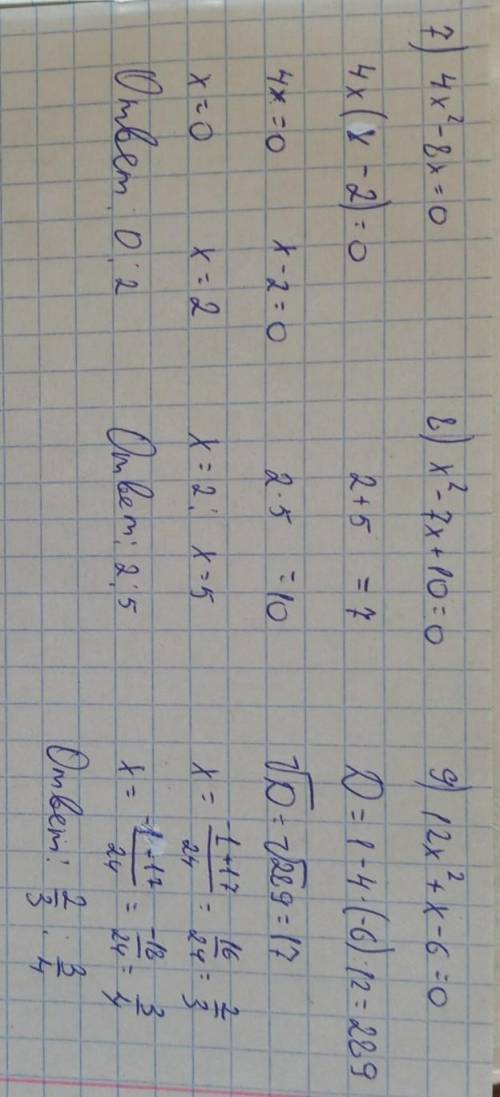 7) 4x² - 8x = 0
4x(x - 2) = 0
4x = 0 x - 2 = 0
x = 0 x = 2
Ответ: 0; 2
8) x² - 7x + 10 = 0
2 + 5 = 7
2 · 5 = 10
x = 2; x = 5
Ответ: 2; 5
9) 12x² + x - 6 = 0
D = 1 - 4 · (-6) · 12 = 289
√D = √289 = 17
x = (-1 + 17)/24 = 16/24 = 2/3
x = (-1 - 17)/24 = -18/24 = 3/4
Ответ: 2/3; 3/4